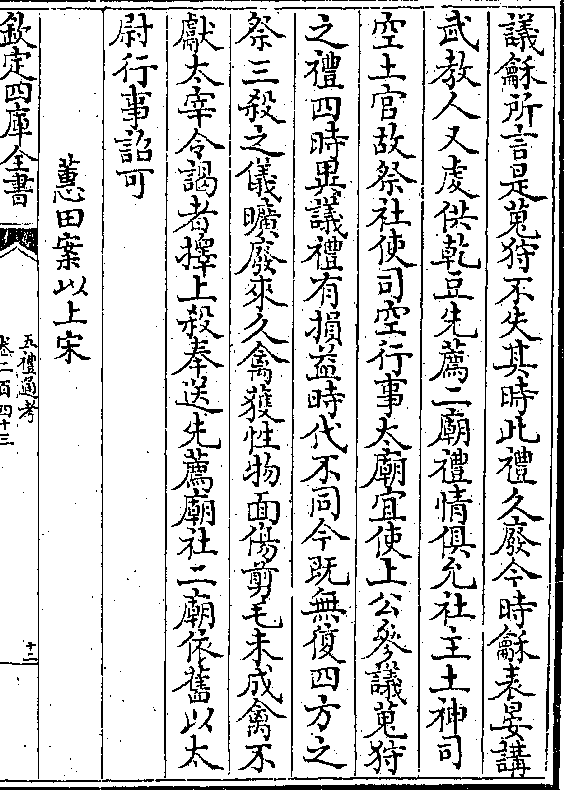 議龢所言是蒐狩不失其時此禮久廢今時龢表晏講
武教人又虔供乾豆先薦二廟禮情俱允社主土神司
空土官故祭社使司空行事太廟宜使上公參議蒐狩
之禮四時異議禮有損益時代不同今既無復四方之
祭三殺之儀曠廢來久禽獲牲物面傷剪毛未成禽不
獻太宰令謁者擇上殺奉送先薦廟社二廟依舊以太
尉行事詔可
蕙田案以上宋
欽定四庫全書
五禮通考
卷二百四十三
十二